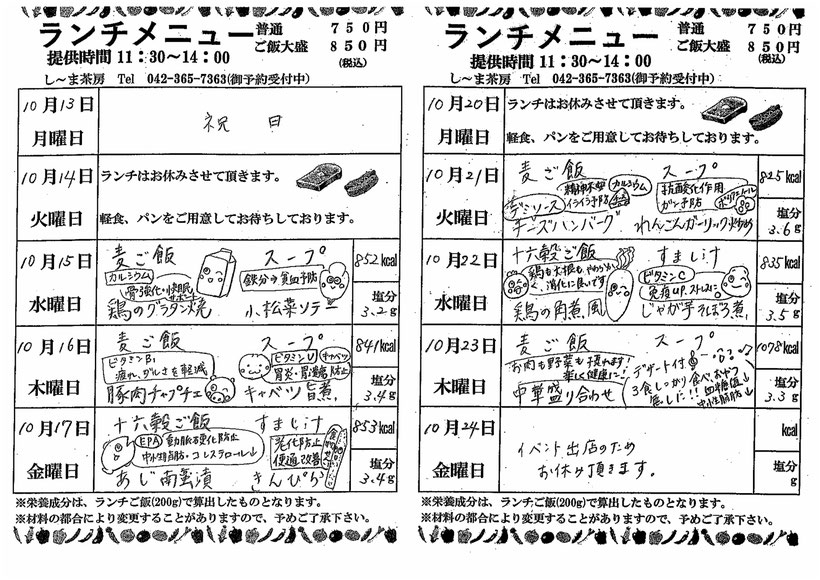 ランチメニュー
普通 750円
ご飯大盛 850円
(税込)
提供時間 11：30～14：00
し～ま茶房 Tel 042-365-7363(御予約受付中)
10月13日
月曜日
祝 日
10月14日
火曜日
ランチはお休みさせて頂きます。
軽食、パンをご用意してお待ちしております。
10月15日
水曜日
麦ご飯 スープ
カルシウム
骨強化・快眠
サポート
鉄分⇒貧血予防
鶏のグラタン焼 小松菜ソテー
852kcal
塩分
3.2g
10月16日
木曜日
麦ご飯 スープ
ビタミンB₁
疲れ、ダルさを軽減
ビタミンU
キャベツ
胃炎・胃潰瘍防止
豚肉チャプチェ キャベツ旨煮
841kcal
塩分
3.4g
10月17日
金曜日
十六穀ご飯 すまし汁
EPA 動脈硬化防止
中性脂肪・コレステロール↓
老化防止
便通改善
食物せんい
あじ南蛮漬 きんぴら
853kcal
塩分
3.4g
※栄養成分は、ランチご飯(200g)で算出したものとなります。
※材料の都合により変更することがありますので、予めご了承下さい。
ランチメニュー
普通 750円
ご飯大盛 850円
(税込)
提供時間 11：30～14：00
し～ま茶房 Tel 042-365-7363(御予約受付中)
10月20日
月曜日
ランチはお休みさせて頂きます。
軽食、パンをご用意してお待ちしております。
10月21日
火曜日
麦ご飯 スープ
精神安定
イライラ予防
カルシウム
抗酸化作用
ガン予防
ポリフェノール
デミソース
チーズハンバーグ れんこんガーリック炒め
825kcal
塩分
3.6g
10月22日
水曜日
十六穀ご飯 すまし汁
鶏も大根も、やわらか
く、消化に良いです
ビタミンC
免疫UP、ストレスに
鶏の角煮風 じゃが芋そぼろ煮
835kcal
塩分
3.5g
10月23日
木曜日
麦ご飯 スープ
お肉も野菜も摂れます!
楽しく健康に!
デザート付
3食しっかり食べ、おやつ
無しに!!
血糖値↓
中性脂肪↓
中華盛り合わせ
1078kcal
塩分
3.3g
10月24日
金曜日
イベント出店のため
お休み頂きます。
kcal
塩分
g
※栄養成分は、ランチご飯(200g)で算出したものとなります。
※材料の都合により変更することがありますので、予めご了承下さい。